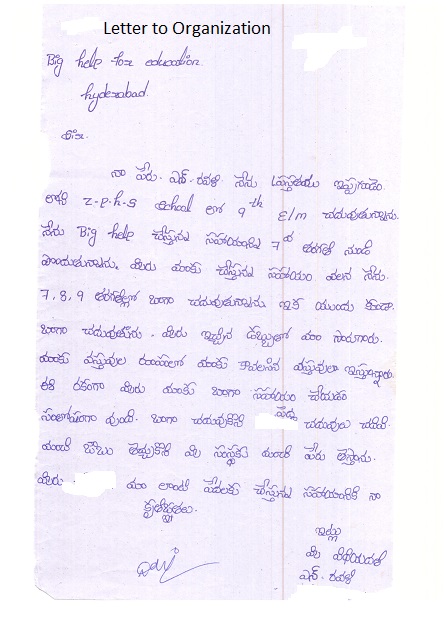 Letter to Organization
Big help for education
hyderabad.
Sir.
నా పేరు. ఎన్. రవళి నేను ప్రస్తుతము ఇప్పగూడెం
లోని Z-p.h.s School లో 9th E/m చదువుతున్నాను.
నేను Big help చేస్తున్న సహాయాన్ని 7వ తరగతి నుండి
పొందుతున్నాను. మీరు మాకు చేస్తున్న సహాయం వలన నేను.
7, 8, 9 తరగతుల్లో బాగా చదువుతున్నాను ఇక ముందు కూడా.
బాగా చదువుతాను. మీరు ఇచ్చిన డబ్బుతో మా సారుగారు.
మాకు వస్తువుల రూపంలో మాకు కావలసిన వస్తువులు ఇస్తున్నారు.
ఈ రకంగా మీరు మాకు బాగా సహాయం చేయడం
సంతోషంగా వుంది. బాగా చదువుకొని పెద్ద చదువులు చదివి.
మంచి జాబు తెచ్చుకొని మీ సంస్థకు మంచి పేరు తెస్తాను.
మీరు మా లాంటి పేదలకు చేస్తున్న సహాయానికి నా
కృతజ్ఞతలు.
ఇట్లు
మీ విధేయురాలు
ఎన్. రవళి